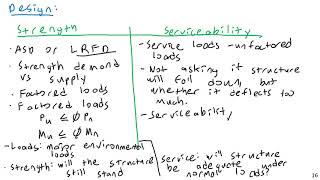 Design:
Strength
- ASD or LRFD
- Strength demand
vs supply
- Factored loads
- Factored loads
Pu ≤ ϕPn
Mu ≤ ϕMn
- Loads: major environmental
loads
- Strength: will the structure
still stand
Serviceability
- Service loads - unfactored
loads
- Not asking if structure
will fall down, but
whether it deflects to
much.
- Serviceability
- Service: will structure
be adequate under
normal loads?
16